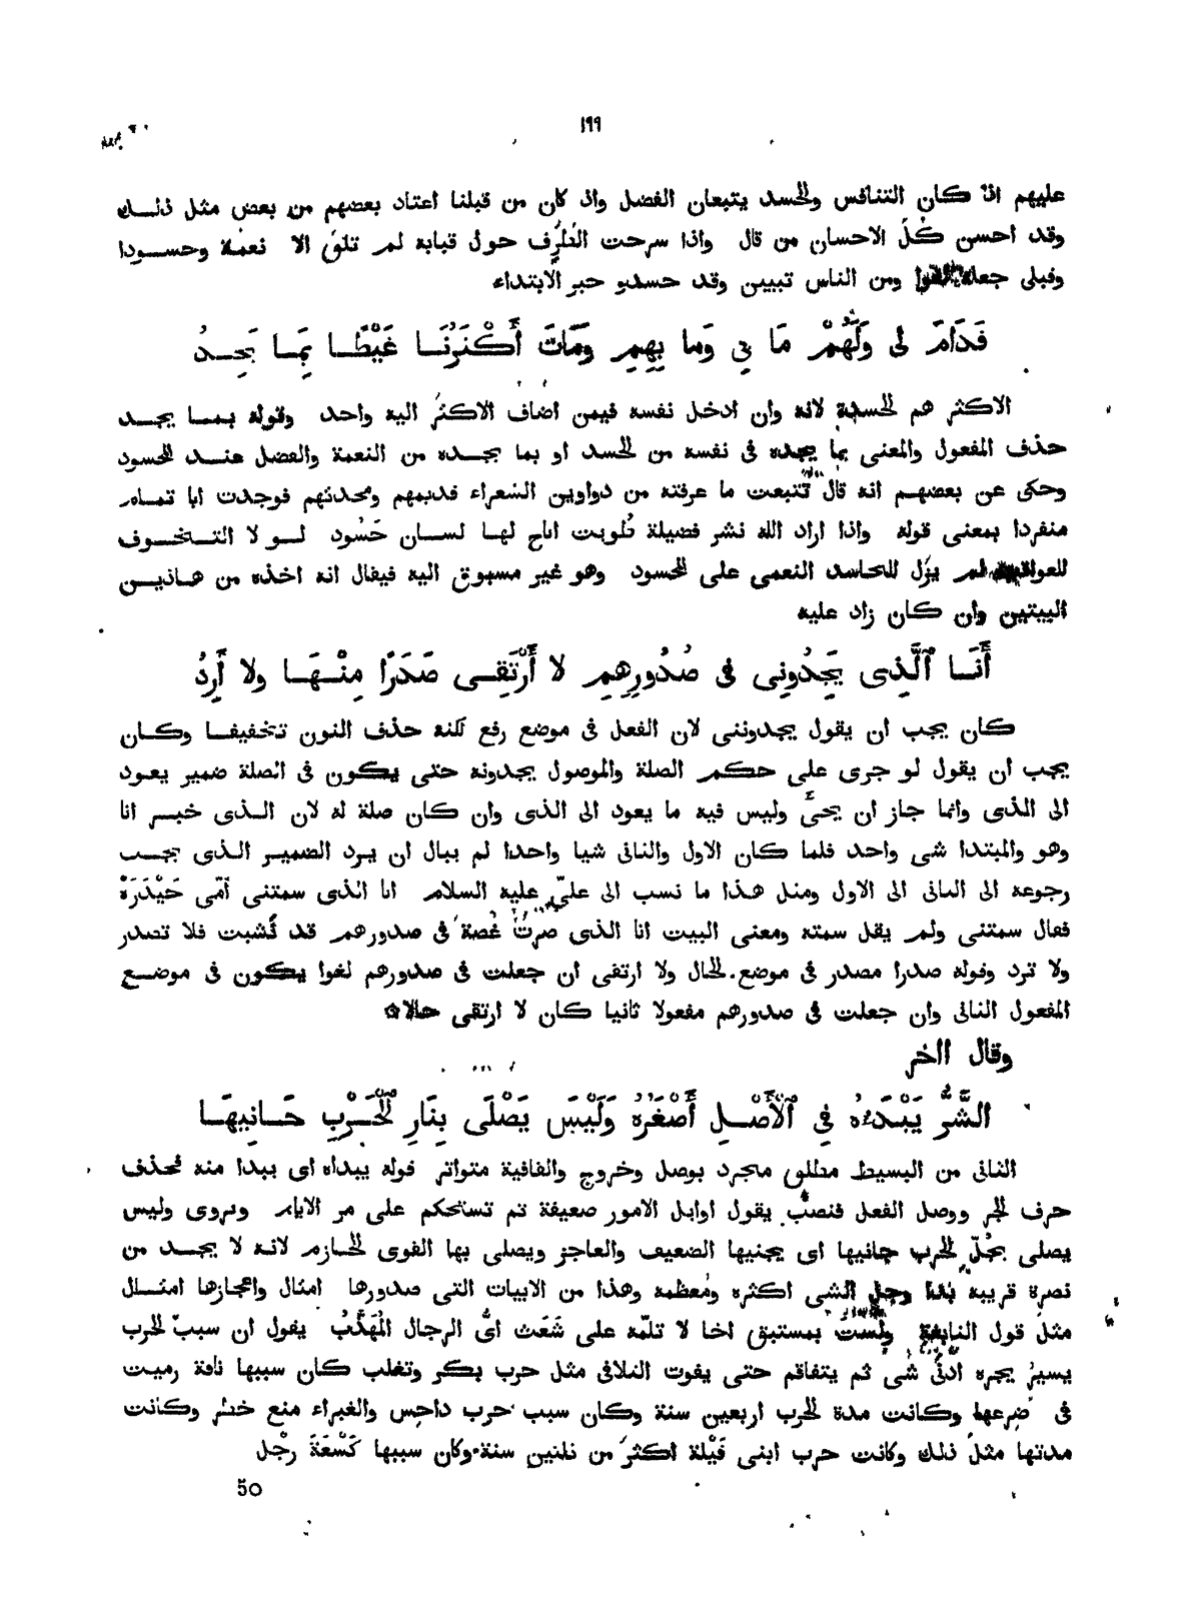 ١٩٩
عليهم اذ كان التنافس والحسد يتبعان الفضل واذ كان من قبلنا اعتاد بعضهم من بعض مثل ذلك
وقد احسن كُلَّ الاحسان من قال واذا سرحت الطَرْف حول قبابه لم تلق الا نعمة وحسودا
وقبلى جعله ومن الناس تبيين وقد حسدو خبر الابتداء
فَدَامَ لِى وَلَهُمْ مَا بِى وَمَا بِهِمِ وَمَاتَ أَكْثَرُنَا غَيْظًا بِمَا يَجِدُ
الاكثر هم الحسدة لانه وان ادخل نفسه فيمن اضاف الاكثر اليه واحد وقوله بما يجد
حذف المفعول والمعنى بما يجده فى نفسه من الحسد او بما يجده من النعمة والفضل عند المحسود
وحكى عن بعضهم انه قال تتبعت ما عرفته من دواوين الشعراء قديمهم ومحدثهم فوجدت ابا تمام
منفردا بمعنى قوله واذا اراد الله نشر فضيلة طُويت اتاح لها لسان حَسُود لو لا التخوف
للعواقب لم يزل للحاسد النعمى على المحسود وهو غير مسبوق اليه فيقال انه اخذه من هاذين
البيتين وان كان زاد عليه
أَنَا ٱلَّذِى يَجِدُونِى فى صُدُورِهِمِ لا أَرْتَقِى صَدَرًا مِنْهَا ولا أَرِدُ
كان يجب ان يقول يجدوننى لان الفعل فى موضع رفع لكنه حذف النون تخفيفا وكان
يجب ان يقول لو جرى على حكم الصلة والموصول يجدونه حتى يكون فى الصلة ضمير يعود
الى الذى وانما جاز ان يجىَّ وليس فيه ما يعود الى الذى وان كان صلة له لان الذى خبر انا
وهو والمبتدا شى واحد فلما كان الاول والثانى شيا واحدا لم يبال ان يرد الضمير الذى يجب
رجوعه الى الثانى الى الاول ومثل هذا ما نسب الى علىّ عليه السلام انا الذى سمتنى أمّى حَيْدَرَهْ
فقال سمتنى ولم يقل سمته ومعنى البيت انا الذى صرتُ غُصة فى صدورهم قد نَشبت فلا تصدر
ولا ترد وقوله صدرا مصدر فى موضع الحال ولا ارتقى ان جعلت فى صدورهم لغوا يكون فى موضع
المفعول الثانى وان جعلت فى صدورهم مفعولا ثانيا كان لا ارتقى حالا ۞
وقال الخر
الشَّرُّ يَبْدَءُهُ فِى ٱلْأَصْلِ أَصْغَرُهُ وَلَيْسَ يَصْلَى بِنَارِ الْحَرْبِ جَانِيهَا
الثانى من البسيط مطلق مجرد بوصل وخروج والقافية متواتر قوله يبداه اى يبدا منه فحذف
حرف الجر ووصل الفعل فنصبَ يقول اوايل الامور ضعيفة ثم تستحكم على مر الايام ويروى وليس
يصلى بجُلّ الحرب جانيها اى يجنيها الضعيف والعاجز ويصلى بها القوى الحازم لانه لا يجد من
نصرة قريبه بُدا وجل الشى اكثره ومُعظمه وهذا من الابيات التى صدورها امثال واعجازها امثال
مثل قول النابغة ولستَ بمستبق اخا لا تلمّه على شَعَث اىُّ الرجال المُهَذَّبُ يقول ان سببَ الحرب
يسير يجره ادنى شى ثم يتفاقم حتى يفوت التلافى مثل حرب بكر وتغلب كان سببها ناقة رميت
فى ضرعها وكانت مدة الحرب اربعين سنة وكان سبب حرب داحس والغبراء منع خطر وكانت
مدتها مثلَ ذلك وكانت حرب ابنى قَيْلة اكثر من ثلثين سنة وكان سببها كَسْعَةَ رجْل
50